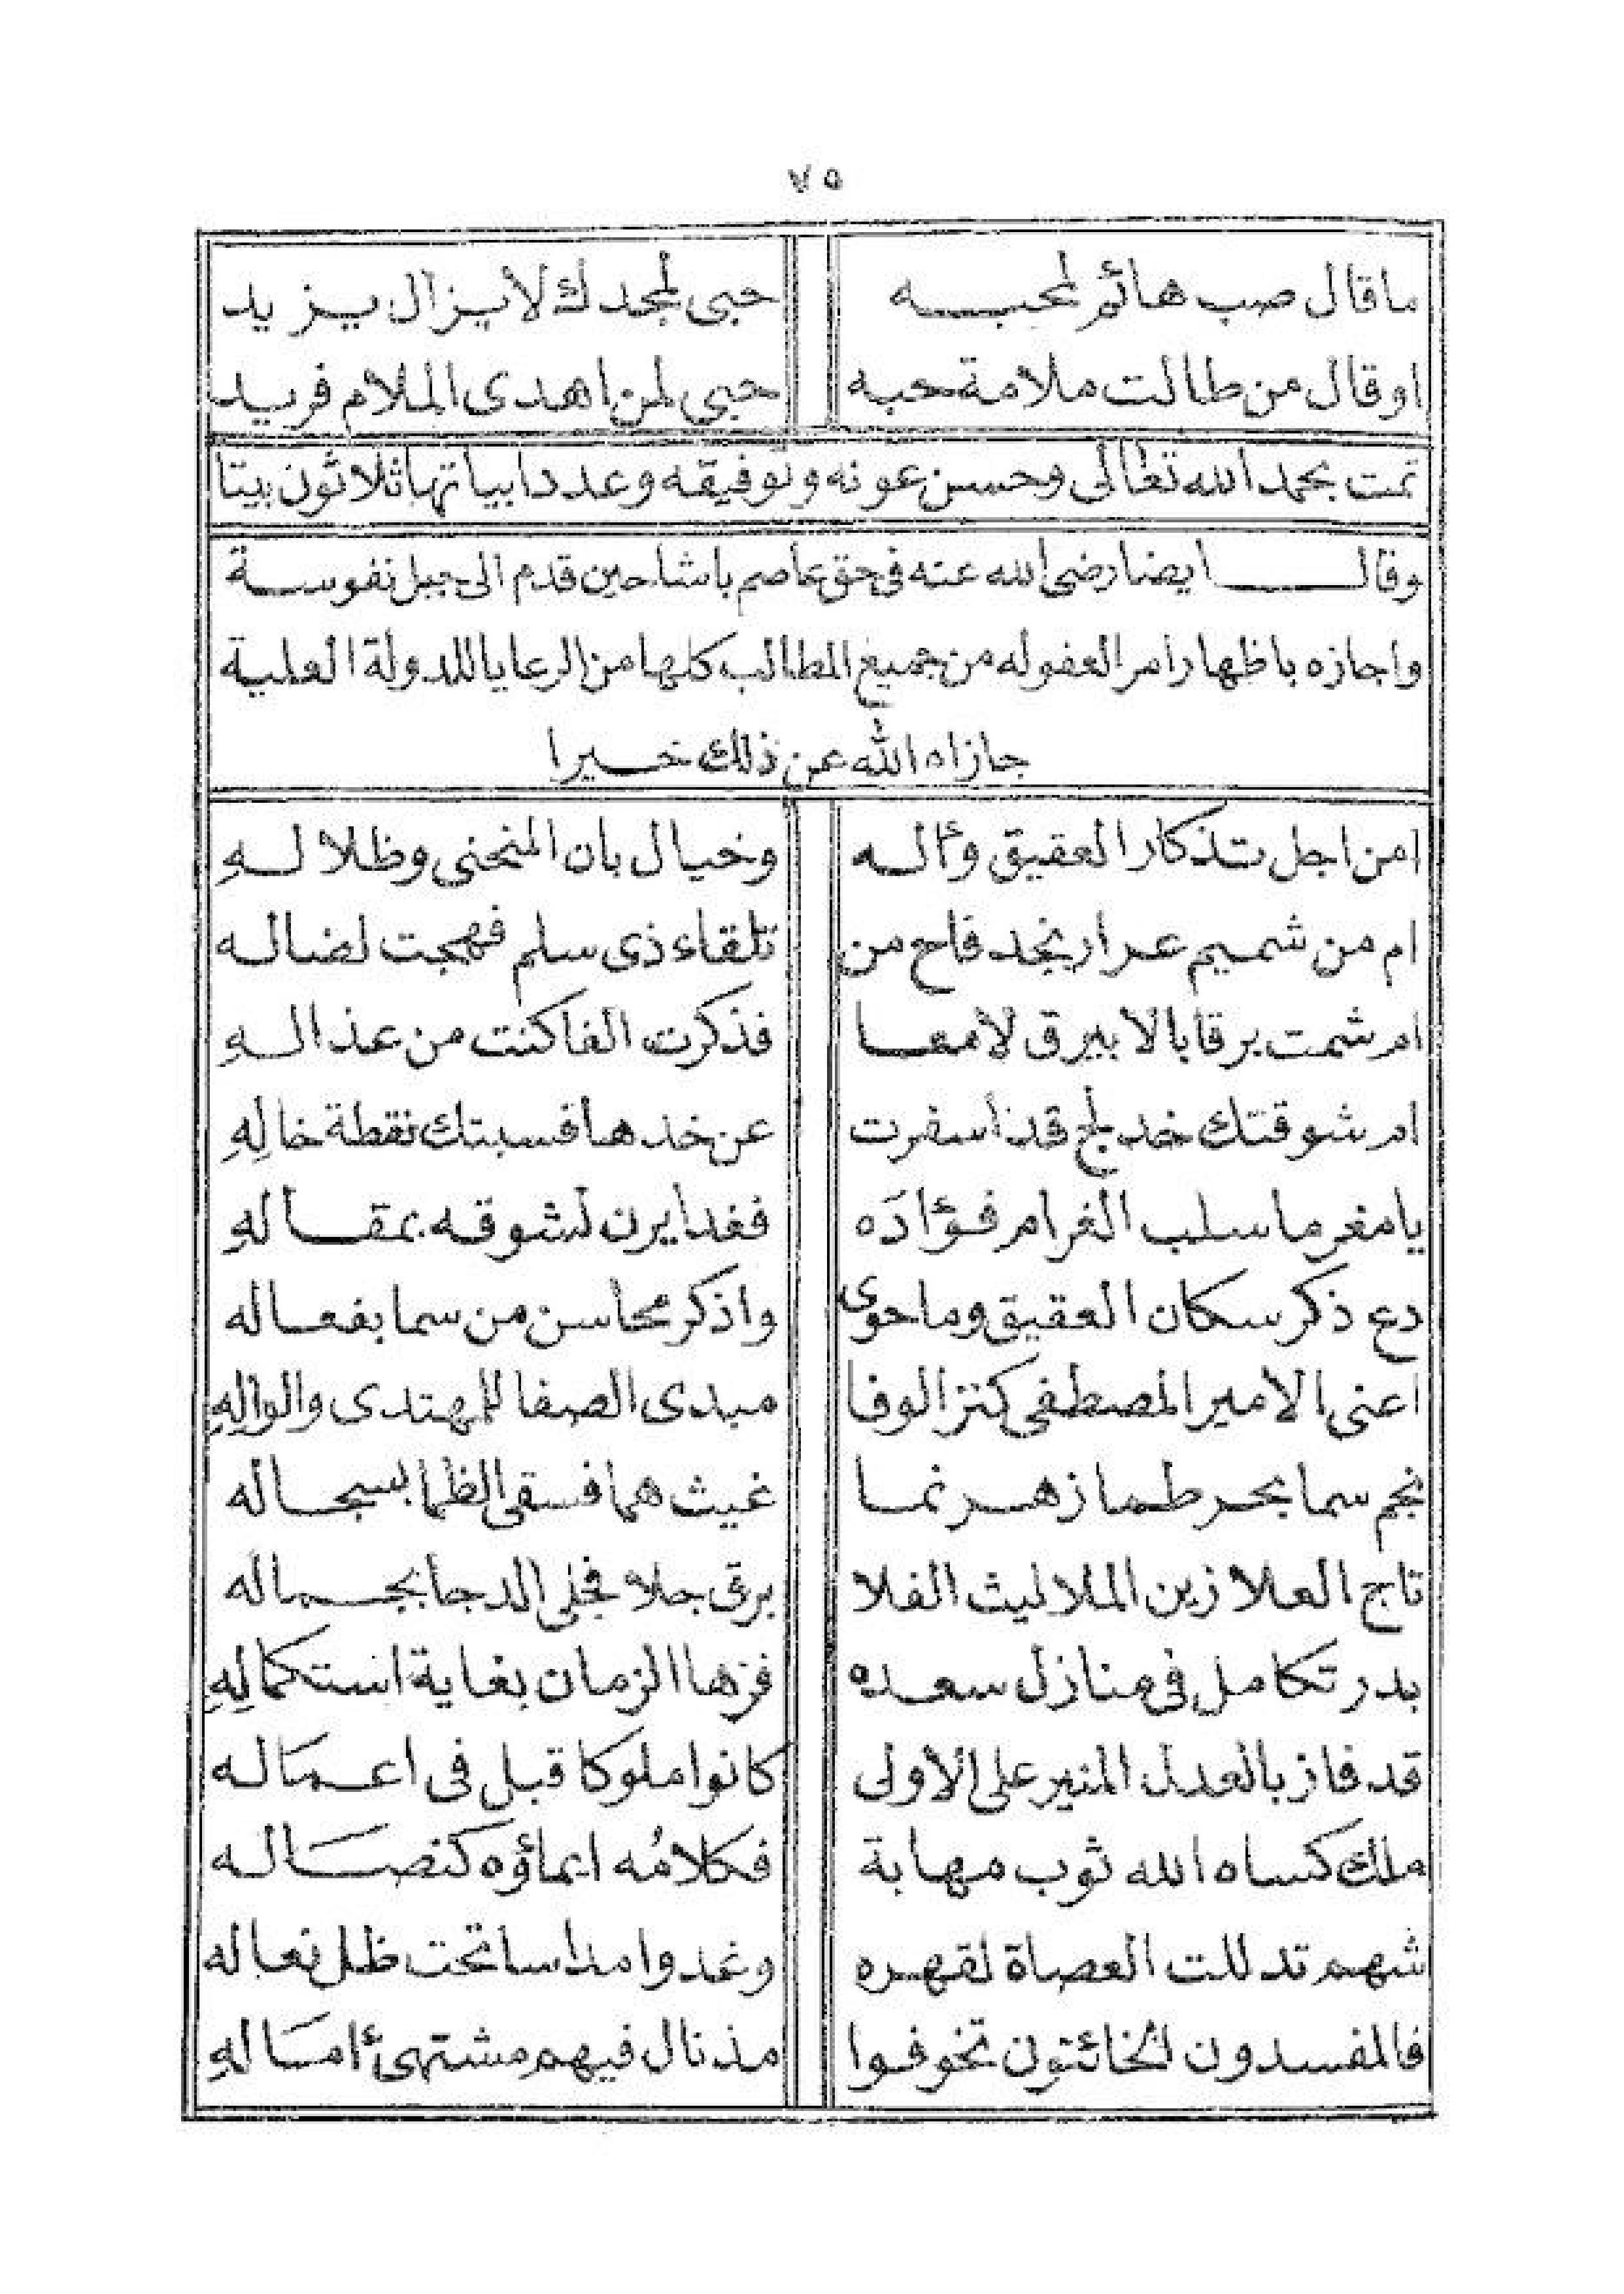 ٧٥
ما قال صب هائم لمحبــه حبى لمجدك لا يزال يزيد
او قال من طالت ملامة حبه حبى لمن اهدى الملام فريد
تمت بحمد الله تعالى وحسن عونه وتوفيقه وعدد ابياتها ثلاثون بيتا
وقال ايضا رضى الله عنه فى حق عاصم باشا حين قدم الى جبل نفوسة
واجازه باظهار امر العفو له من جميع المطالب كلها من الرعايا للدولة العلية
جازاه الله عن ذلك خيرا
امن اجل تذكار العقيق وءاله وخيال بان المنحنى وظلالهِ
ام من شميم عرار نجد فاح من تلقاء ذى سلم فهجت لضاله
ام شمت برقا بالابيرق لامعا فذكرت الفا كنت من عذالهِ
ام شوقتك خدلج قد أسفرت عن خدها فسبتك نقطة خالِهِ
يا مغرما سلب الغرام فؤادَه فغدا يرن لشوقه بمقالهِ
دع ذكر سكان العقيق وما حوى واذكر محاسن من سما بفعاله
اعنى الامير المصطفى كنز الوفا مبدى الصفا للمهتدى والوالِهِ
نجم سما بحر طما زهر نما غيث هما فسقى الظما بسجاله
تاج العلا زين الملا ليث الفلا برق جلا فجلى الدجا بجماله
بدر تكامل فى منازل سعده فزها الزمان بغاية استكمالِهِ
قد فاز بالعدل المنير على الأولى كانوا ملوكا قبل فى اعماله
ملك كساه الله ثوب مهابة فكلامُه ايماؤه كنصاله
شهم تدللت العصاة لقهره وغدوا مداسا تحت ظل نعاله
فالمفسدون الخائنون تخوفوا مذ نال فيهم مشتهىء امالهِ